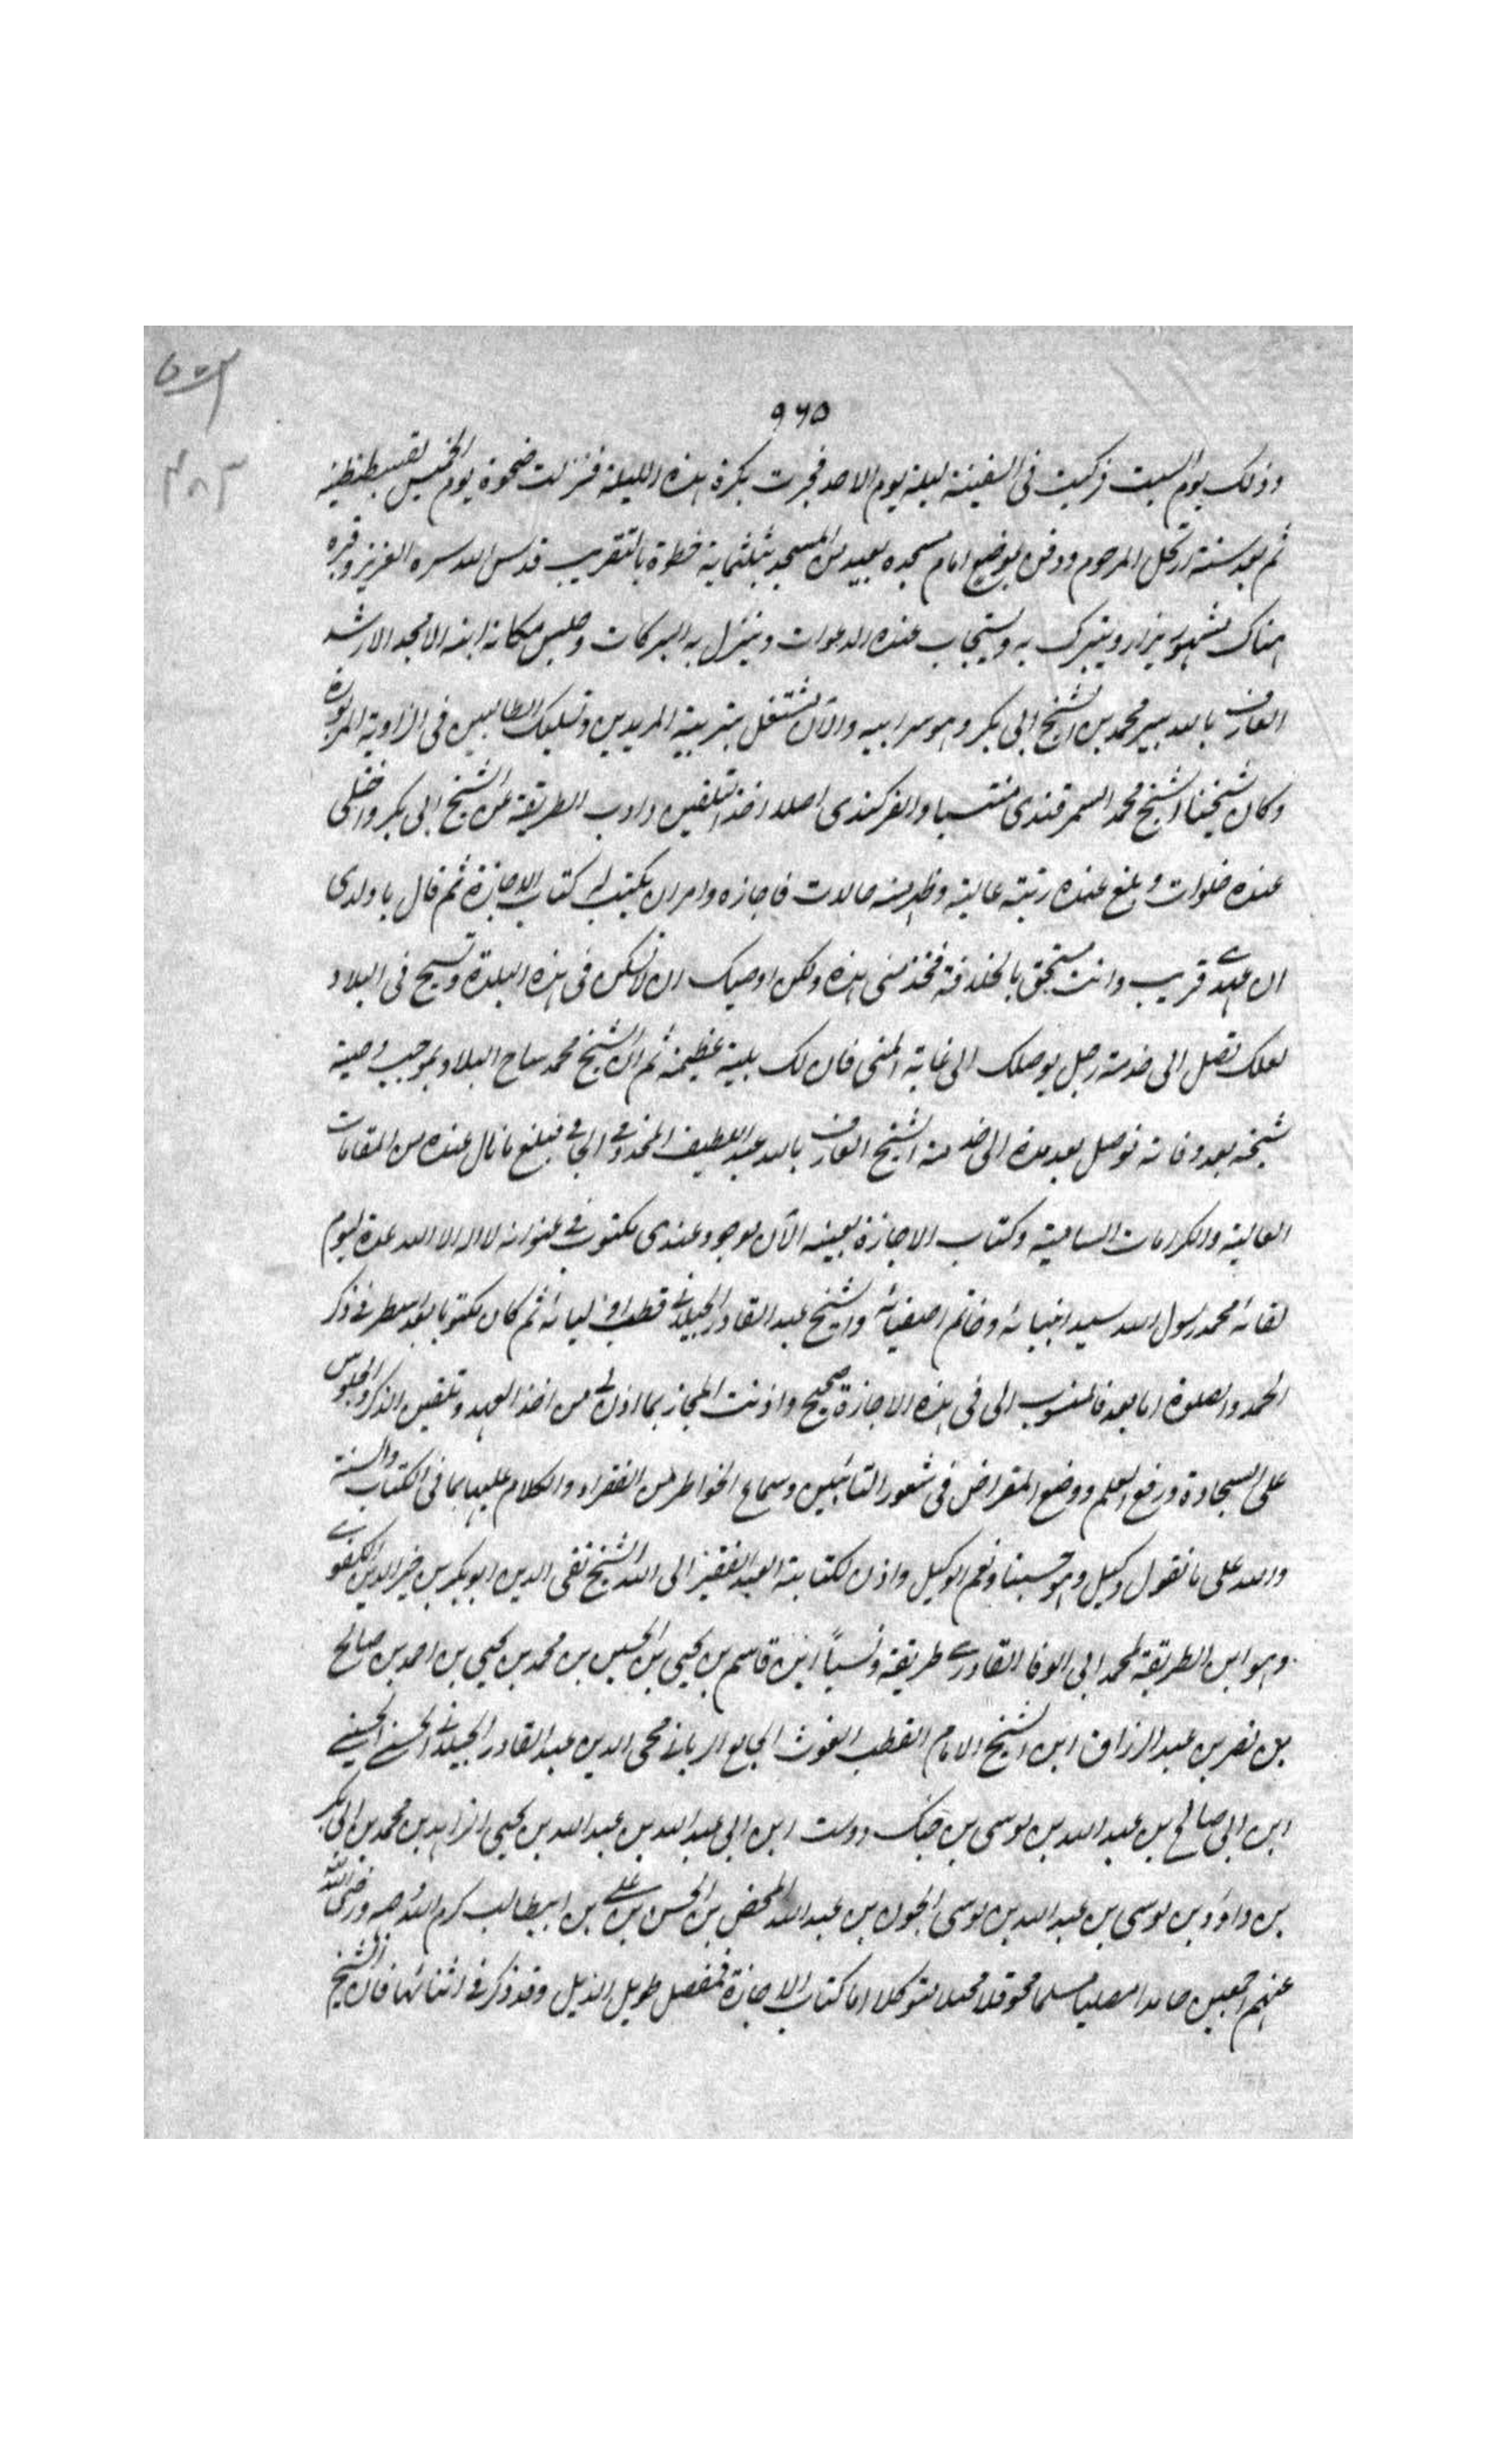 ٩٦٥
وذلك يوم السبت فركبت فى السفينة ليلة يوم الاحد فجرت بكرة هذه الليلة فنزلت ضحوة يوم الخميس بقسطنطنية
ثم بعد سنة ارتحل المرحوم ودفن بموضع امام مسجده بعيد من المسجد بثلثماية خطوة بالتقريب قدس الله سره العزيز وقبره
هناك مشهور يزار ويتبرك به ويستجاب عنده الدعوات وينزل به البركات وجلس مكانه ابنه الامجد الارشد
العارف بالله بير محمد بن الشيخ ابى بكر وهو سر ابيه والآن مشتغل بتربية المريدين وتسليك الطالبين فى الزاوية المزبورة
وكان شيخنا الشيخ محمد السمرقندى منتسبا والفركندى اصلا اخذ التلقين وادب الطريقة عن الشيخ ابى بكر واختلى
عنده خلوات وبلغ عنده رتبة عالية وظهر منه حالات فاجازه وامر ان يكتب له كتاب الاجازة ثم قال يا ولدى
ان عهدى قريب وانت مستحق بالخلافة فخذ منى هذه ولكن اوصيك ان لا تسكن فى هذه البلدة وتسيح فى البلاد
لعلك تصل الى خدمة رجل يوصلك الى غاية المنى فان لك بلية عظيمة ثم ان الشيخ محمد ساح البلاد بموجب وصية
شيخه بعد وفاته فوصل بعد مدة الى خدمة الشيخ العارف بالله عبد اللطيف المخدومى الجامى فبلغ ما نال عنده من المقامات
العالية والكرامات السامية وكتاب الاجازة بعينه الآن موجود عندى مكتوب فى عنوانه لا اله الا الله عدة ليوم
لقائه محمد رسول الله سيد انبيائه وخاتم اصفيائه والشيخ عبد القادر الجيلانى قطب اوليائه ثم كان مكتوبا بعد اسطر فى ذكر
الحمد والصلوة اما بعد فالمنسوب الى فى هذه الاجازة صحيح واذنت المجاز بما اذن لى من اخذ العهد وتلقين الذكر والجلوس
على السجادة ورفع العلم ووضع المقراض فى شعور التائبين وسماع الخواطر من الفقراء والكلام عليها بما فى الكتاب والسنة
والله على ما نقول وكيل وهو حسبنا ونعم الوكيل واذن لكتابته العبد الفقير الى الله الشيخ تقى الدين ابو بكر بن خير الدين الكفوى
وهو ابن الطريقة لمحمد ابى الوفا القادرى طريقة ونسباً ابن قاسم بن يحيى بن الحسين بن محمد بن يحيى بن احمد بن صالح
بن نصر بن عبد الرزاق ابن الشيخ الامام القطب الغوث الجامع الربانى محى الدين عبد القادر الجيلانى الحسنى الحسينى
ابن ابى صالح بن عبد الله بن موسى بن جنك دوست ابن ابى عبد الله بن عبد الله بن يحيى الزاهد بن محمد بن ابى بكر
بن داؤد بن موسى بن عبد الله بن موسى الجون بن عبد الله المحض بن الحسن بن على بن ابيطالب كرم الله وجهه ورضى الله
عنهم اجمعين حامدا مصليا مسلما محوقلا متوكلا اما كتاب الاجازة فمفصل طويل الذيل وقد ذكر فى اثنائها فان الشيخ